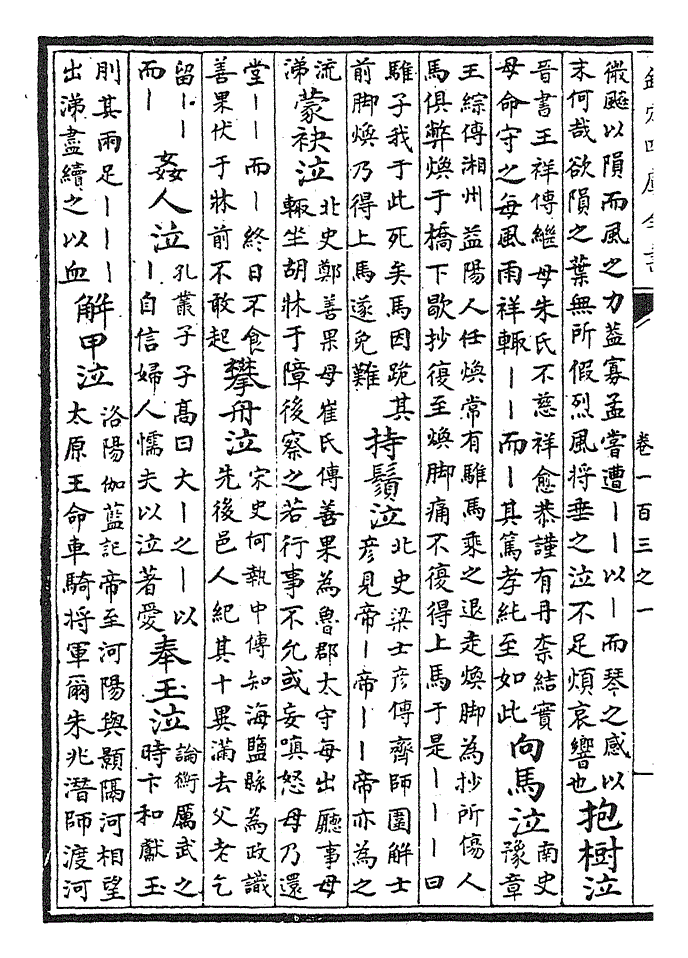 欽定四庫全書　卷一百三之一
微颷以隕而風之力葢寡孟嘗遭丨丨以丨而琴之感以
末何哉欲隕之葉無所假烈風将垂之泣不足煩哀響也
抱樹泣
晉書王祥傳繼母朱氏不慈祥愈恭謹有丹柰結實
母命守之每風雨祥輒丨丨而丨其篤孝純至如此
向馬泣
南史
豫章
王綜傳湘州益陽人任煥常有騅馬乘之退走煥脚為抄所傷人
馬俱弊煥于橋下歇抄復至煥脚痛不復得上馬于是丨丨丨曰
騅子我于此死矣馬因跪其
前脚煥乃得上馬遂免難
持鬚泣
北史梁士彦傳齊師圍解士
彦見帝丨帝丨丨帝亦為之
流
涕
蒙袂泣
北史鄭善果母崔氏傳善果為魯郡太守每出廳事母
輒坐胡牀于障後察之若行事不允或妄嗔怒母乃還
堂丨丨而丨終日不食
善果伏于牀前不敢起
攀舟泣
宋史何執中傳知海鹽縣為政識
先後邑人紀其十異滿去父老乞
留丨丨
而丨
姦人泣
孔叢子子高曰大丨之丨以
丨自信婦人懦夫以泣著愛
奉玉泣
論衡厲武之
時卞和獻玉
刖其兩足丨丨丨
出涕盡續之以血
解甲泣
洛陽伽藍記帝至河陽與顥隔河相望
太原王命車騎将軍爾朱兆潛師渡河